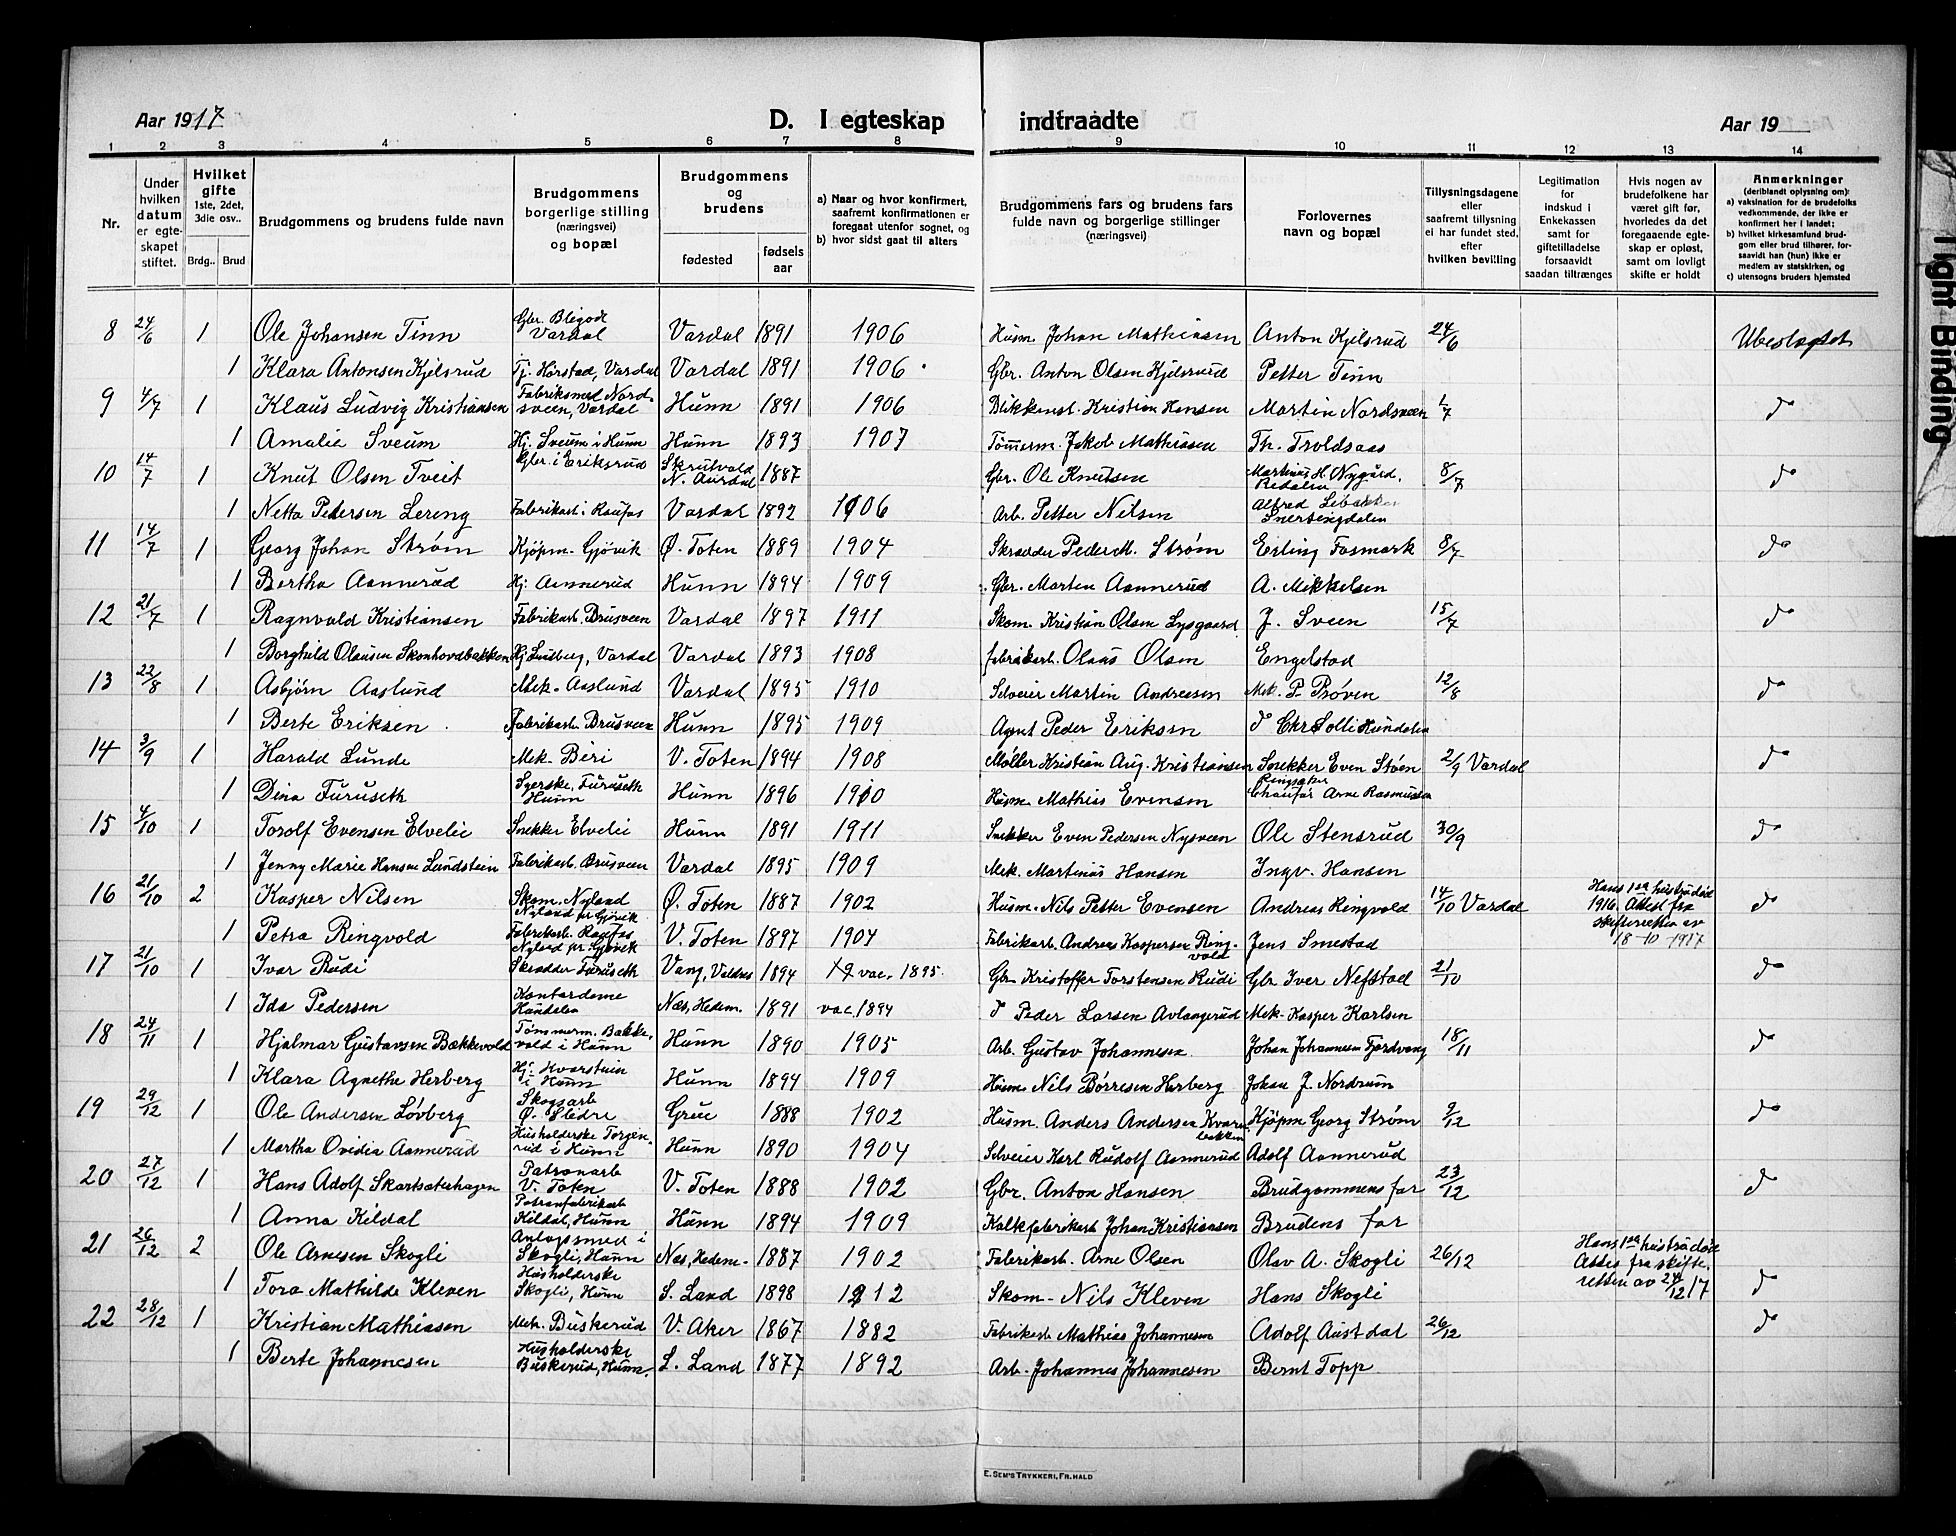 Aar 1917 D. I egteskap indtraadte Aar 19
1 2 3 4 5 6 7 8 9 10 11 12 13 14
Nr. Under hvilken datum er egteskapet stiftet. Hvilket gifte 1ste, 2det, 3die osv.. Brdg.. Brud Brudgommens og brudens fulde navn Brudgommens borgerlige stilling (næringsvei) og bopæl Brudgommens og brudens fødested fødsels aar a) Naar og hvor konfirmert, saafremt konfirmationen er foregaat utenfor sognet, og b) hvor sidst gaat til alters Brudgommens fars og brudens fars fulde navn og borgerlige stillinger (næringsvei) Forlovernes navn og bopæl Tillysningsdagene eller saafremt tillysning ei har fundet sted, efter hvilken bevilling Legitimation for indskud i Enkekassen samt for giftetilladelse forsaavidt saadan tiltrænges Hvis nogen av brudefolkene har været gift før, hvorledes da det foregaaende egteskap er opløst, samt om lovligt skifte er holdt Anmerkninger (deriblandt oplysning om): a) vaksination for de brudefolks vedkommende, der ikke er konfirmert her i landet; b) hvilket kirkesamfund brudgom eller brud tilhører, forsaavidt han (hun) ikke er medlem av statskirken, og c) utensogns bruders hjemsted
8 24/6 1 Ole Johansen Tinn Gbr. Vardal Vardal 1891 1906 Husm. Johan Mathiassen Anton Kjelsrud 24/6 Ubeslegtet
1 Klara Antonsen Kjelsrud Tj. Harstad, Vardal Vardal 1891 1906 Gbr. Anton Olsen Kjelsrud Petter Tinn
9 4/7 1 Klaus Ludvig Kristiansen Fabriksmed Nordsveen, Vardal Hunn 1891 1906 Blikkensl. Kristian Hansen Martin Nordsveen 1/7 do
1 Amalie Sveum Hj. Sveum i Hunn Hunn 1893 1907 Tømmerm. Jakob Mathiasen Th. Troldsaas
10 14/7 1 Knut Olsen Tveit Gbr. i Eriksrud Skrutvold N. Aurdal 1887 Gbr. Ole Knutsen Martinus H. Nygård, Redalen 8/7 do
1 Netta Pedersen Lereng Fabrikarb. i Raufos Vardal 1892 1906 Arb. Petter Nilsen Alfred Libakken Snertingdalen
11 14/7 1 Georg Johan Strøm Kjøpm. Gjøvik Ø. Toten 1889 1904 Skrædder Peder M. Strøm Erling Fosmark 8/7 do
1 Bertha Aannerud Hj. Aannerud Hunn 1894 1909 Gbr. Marten Aannerud A. Mikkelsen
12 21/7 1 Ragnvald Kristiansen Fabrikarb. Brusveen Vardal 1897 1911 Skom. Kristian Olsen Lysgaard J. Sveen 15/7 do
1 Borghild Olausen Skonhovdbakken Hj. Lundberg, Vardal Vardal 1893 1908 fabrikarb. Olaus Olsen Engelstad
13 22/8 1 Asbjørn Aaslund Mek. Aaslund Vardal 1895 1910 Selveier Martin Andreasen Mek. P. Prøven 12/8 do
1 Berte Eriksen Fabrikarb. Brusveen Hunn 1895 1909 Agent Peder Eriksen do Chr Solli Hundalen
14 3/9 1 Harald Lunde Mek. Biri V. Toten 1894 1908 Møller Kristian Aug. Kristiansen Snekker Even Støen Ringsaker 2/9 Vardal do
1 Dina Furuseth Syerske, Furuseth Hunn Hunn 1896 1910 Husm. Mathias Evensen Chaufør Arne Rasmussen
15 4/10 1 Torolf Evensen Elvelie Snekker Elvelie Hunn 1891 1911 Snekker Even Pedersen Nysveen Ole Stensrud 30/9 do
1 Jenny Marie Hansen Lundstein Fabrikarb. Brusveen Vardal 1895 1909 Mek. Martinus Hansen Ingv. Hansen
16 21/10 2 Kasper Nilsen Skom. Nyland Nyland pr. Gjøvik Ø. Toten 1887 1902 Husm. Nils Petter Evensen Andreas Ringvold 14/10 Vardal Hans 1ste hustru død 1916. Attest fra skifteretten av 18-10-1917 do
1 Petra Ringvold Fabrikarb. Raufos Nyland pr. Gjøvik V. Toten 1897 1904 Fabrikarb. Andreas Kaspersen Ringvold Jens Smestad
17 21/10 1 Ivar Rudi Skrædder Furuseth Vang, Valdres 1894 vac. 1895 Gbr. Kristoffer Torstensen Rudi Gbr. Iver Nefstad 21/10 do
1 Ida Pedersen Kontordame Hundalen Næs, Hedem. 1891 vac 1894 do Peder Larsen Avlangerud Mek. Kasper Karlsen
18 24/11 1 Hjalmar Gustavsen Bækkevold Tømmerm. Bækkevold i Hunn Hunn 1890 1905 Arb. Gustav Johannesen Johan Johannesen Fjordvang 18/11 do
1 Klara Agnethe Herberg Hj. Kvarstein i Hunn Hunn 1894 1909 Husm. Nils Børresen Herberg Johan J. Nordrum
19 29/12 1 Ole Andersen Løvberg Skogsarb. Ø. Slidre Grue 1888 1902 Husm. Anders Andersen Kvarnbakken Kjøpm. Georg Strøm 9/12 do
1 Martha Ovidia Aannerud Husholderske Torgenrud i Hunn Hunn 1890 1904 Selveier Karl Rudolf Aannerud Adolf Aannerud
20 27/12 1 Hans Adolf Skartsæterhagen Patronarb V. Toten V. Toten 1888 1902 Gbr. Anton Hansen Brudgommens far 23/12 do
1 Anna Kildal Patronfabrikarb Kildal, Hunn Hunn 1894 1909 Kalkfabrikarb. Johan Kristiansen Brudens far
21 26/12 2 Ole Arnesen Skogli Anlægssmed i Skogli, Hunn Næs, Hedem. 1887 1902 Fabrikarb. Arne Olsen Olav A. Skogli 26/12 Hans 1ste hustru død Attes fra skifteretten av 24/12 17
1 Tora Mathilde Kleven Husholderske Skogli, Hunn S. Land 1898 1912 Skom. Nils Kleven Hans Skogli do
22 28/12 1 Kristian Mathiasen Mek. Buskerud V. Aker 1867 1882 Fabrikarb. Mathias Johannesen Adolf Austdal 26/12 do
1 Berte Johannesen Husholderske Buskerud, Hunn. S. Land 1877 1892 Arb. Johannes Johannesen Bernt Topp
E. SEM'S TRYKKERI, FR.HALD
Tight Binding